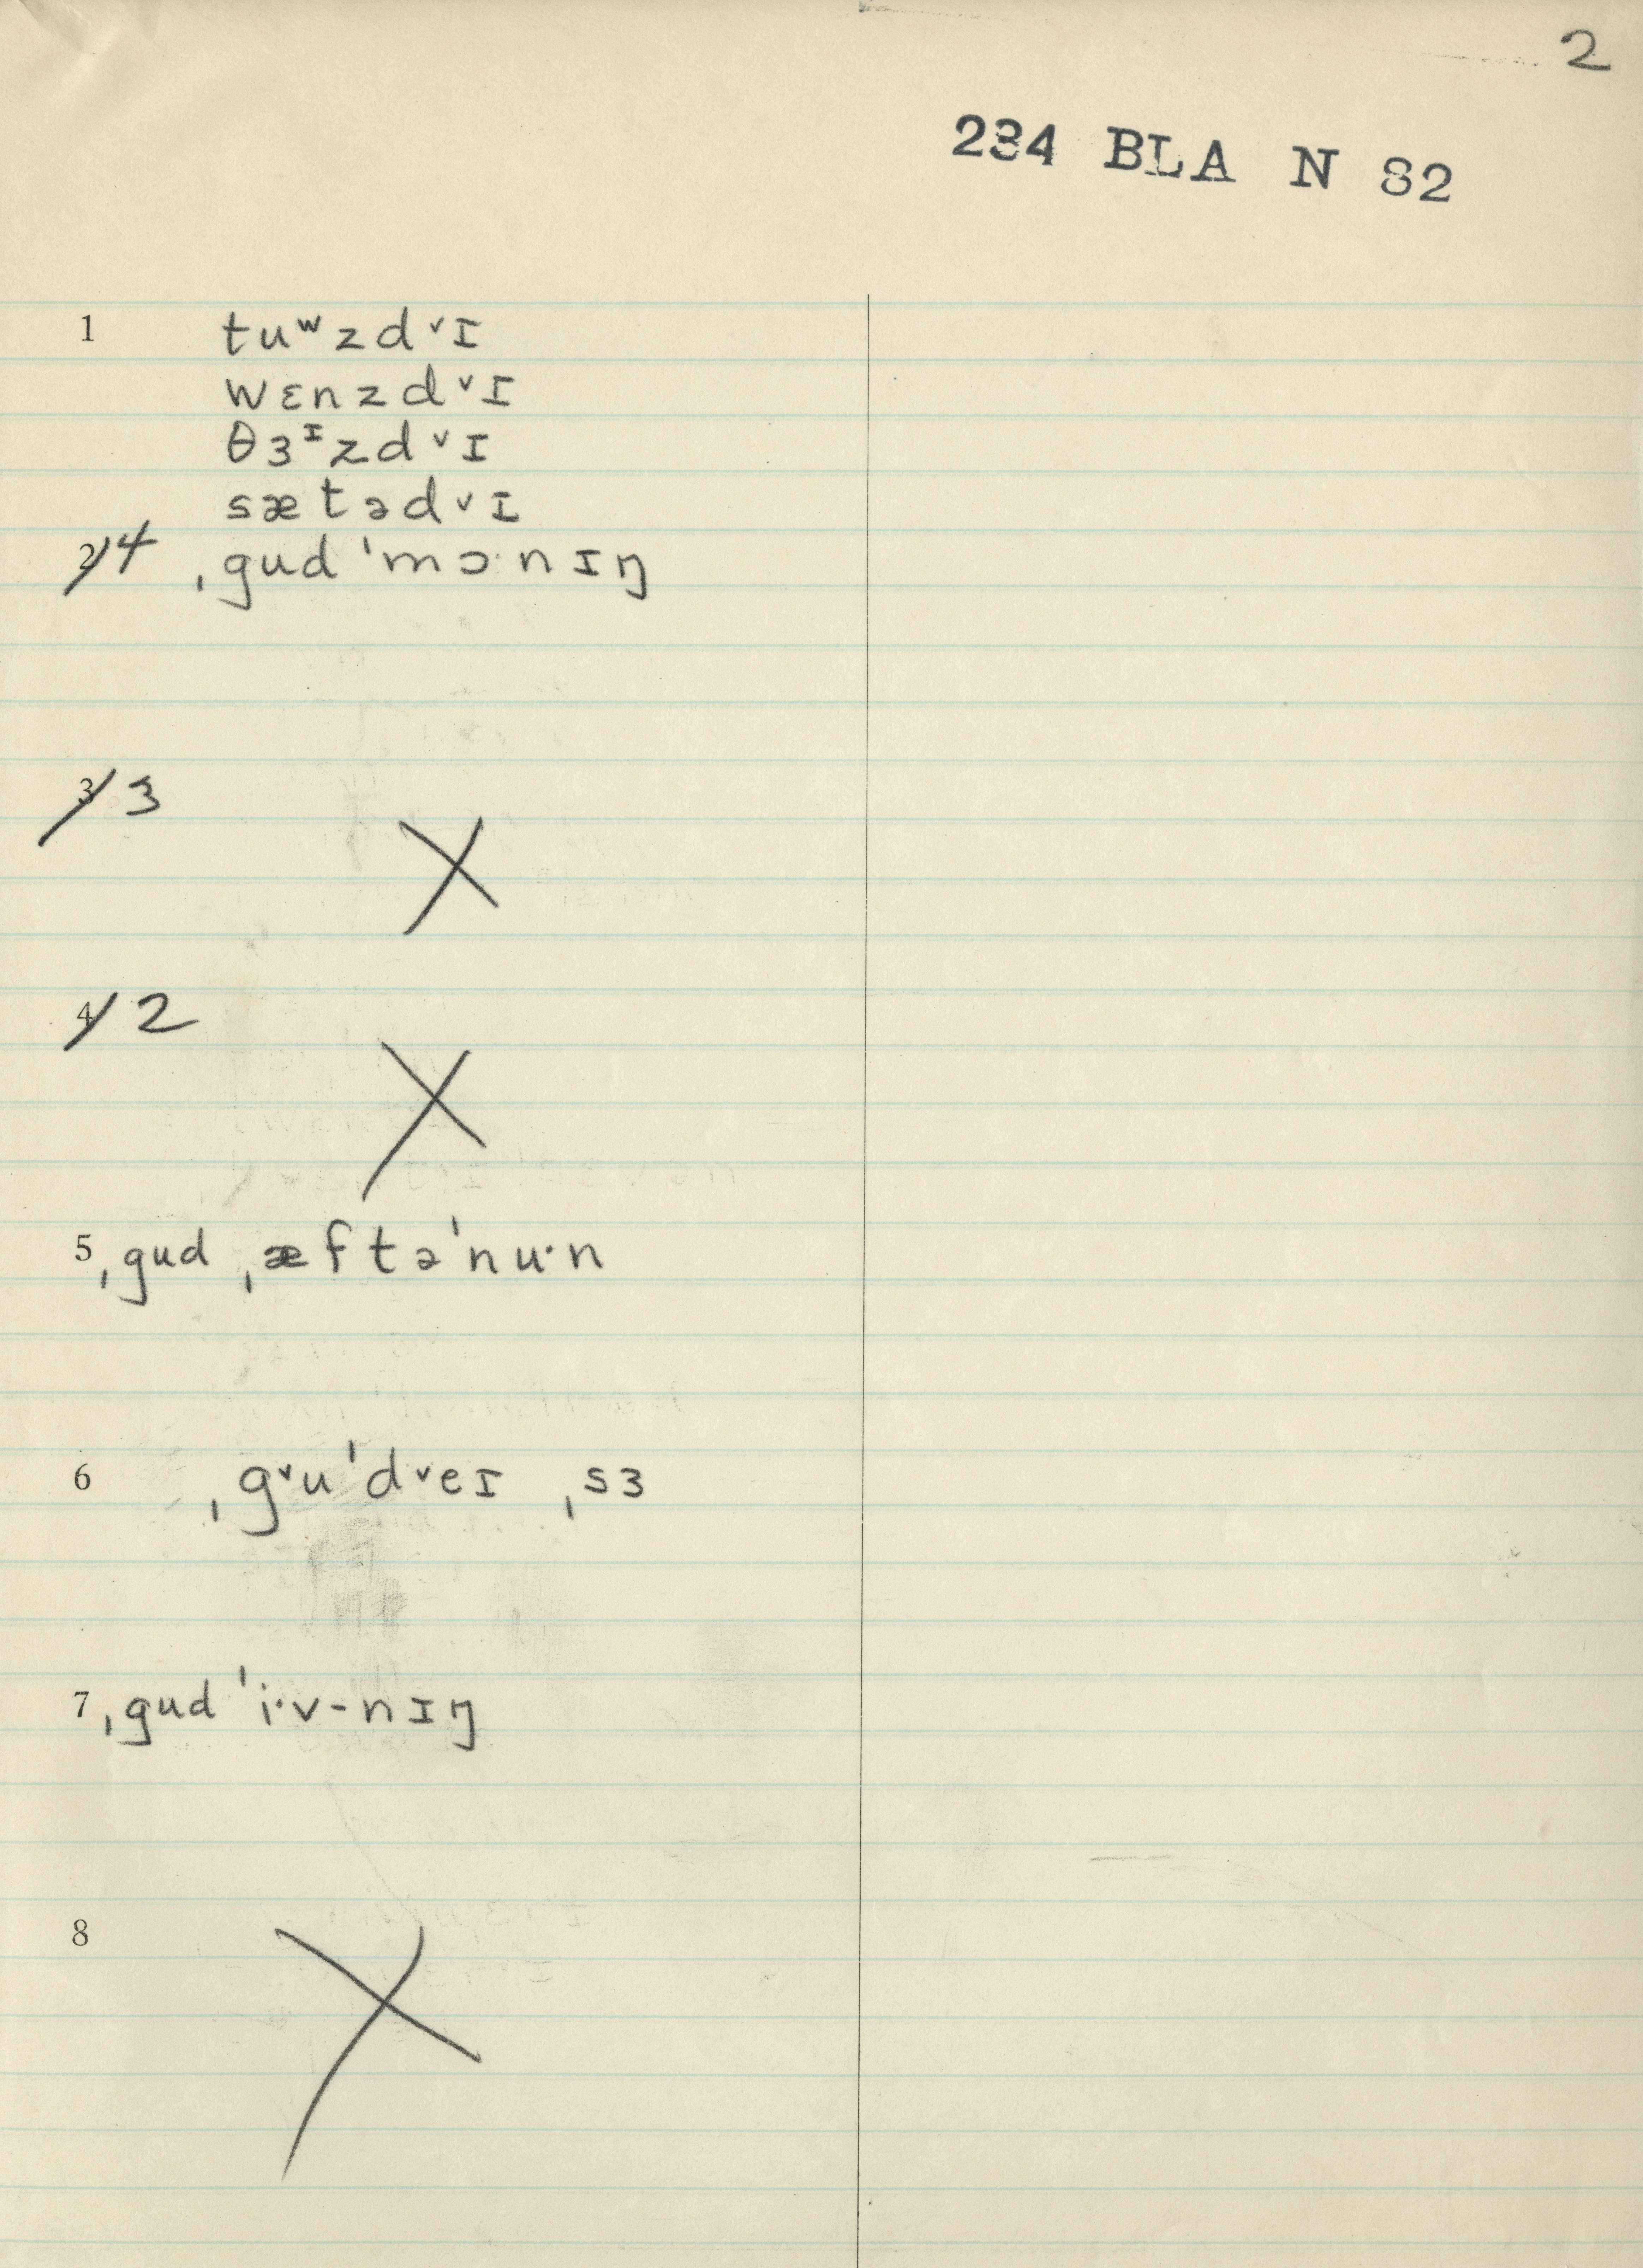 2
234 BLA N 82
1 tuʷzdᵛɪ
wɛnzdᵛɪ
θɜᶦzdᵛɪ
sætədᵛɪ
2 4 ˌgud ˈmɔ·nɪŋ
3 3
X
4 2
X
5 ˌgud ˌæftəˈnu·n
6 ˌgᵛuˈdᵛeɪ ˌsɜ
7 ˌgud ˈi·v-nɪŋ
8
X